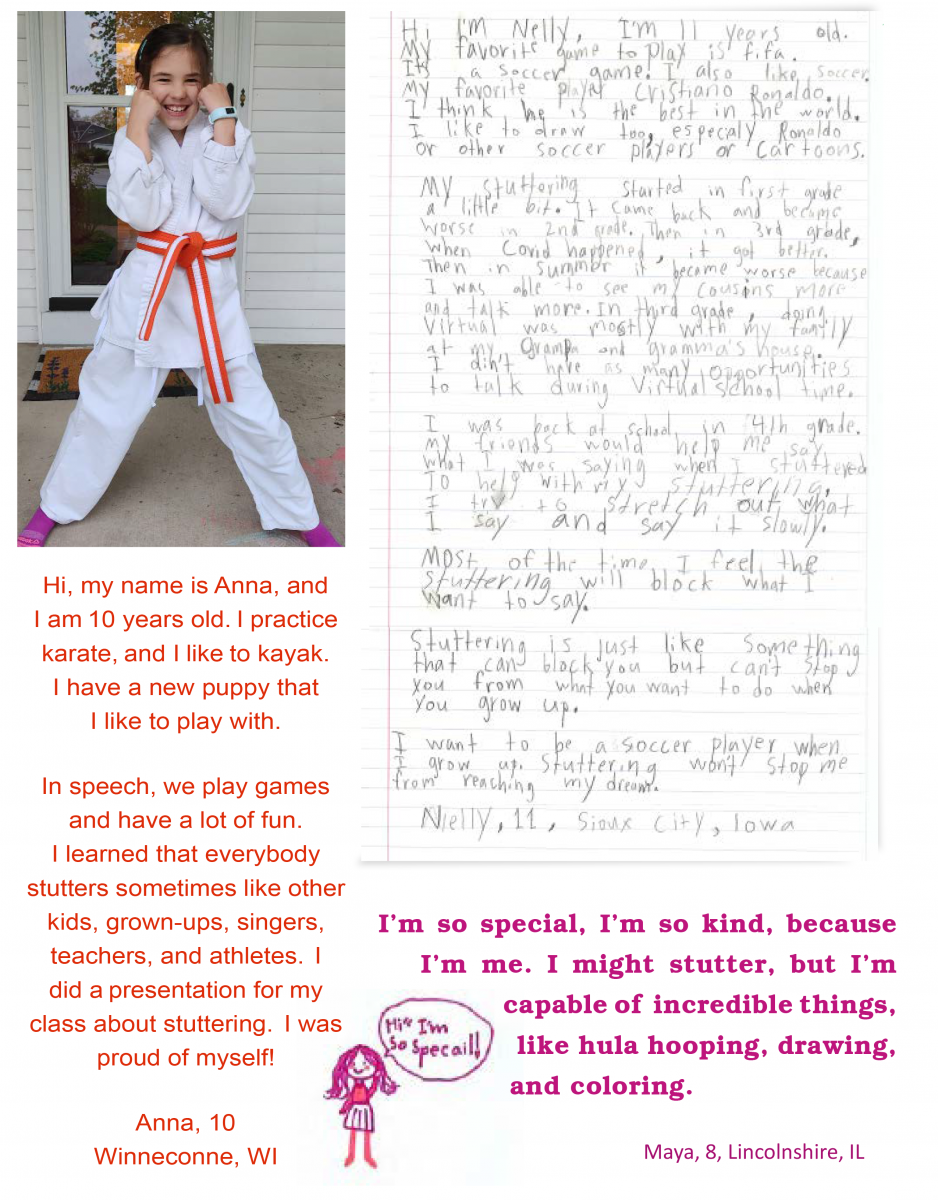 Hi, my name is Anna, and
I am 10 years old. I practice
karate, and I like to kayak.
I have a new puppy that
I like to play with.
In speech, we play games
and have a lot of fun.
I learned that everybody
stutters sometimes like other
kids, grown-ups, singers,
teachers, and athletes. I
did a presentation for my
class about stuttering. I was
proud of myself!
Anna, 10
Winneconne, WI
Hi, I'm Nelly, I'm 11 years old.
My favorite game to play is fifa.
It's a soccer game! I also like soccer.
My favorite player Cristiano Ronaldo.
I think he is the best in the world.
I like to draw too, especialy Ronaldo
or other soccer players or cartoons.
My stuttering started in first grade
a little bit. It came back and became
worse in 2nd grade. Then in 3rd grade,
when Covid happened, it got better.
Then in summer it became worse because
I was able to see my cousins more
and talk more. In third grade, doing
Virtual was mostly with my family
at my Grampa and gramma's house.
I din't have as many opportunities
to talk during Virtual school time.
I was back at school, in 4th grade.
my friends would help me say
what I was saying when I stuttered
To help with my stuttering,
I try to stretch out what
I say and say it slowly.
Most of the time, I feel the
stuttering will block what I
want to say.
Stuttering is just like something
that can block you but can't stop
you from what you want to do when
you grow up.
I want to be a soccer player when
I grow up. Stuttering won't stop me
from reaching my dream.
Nelly, 11, Sioux City, Iowa
I'm so special, I'm so kind, because
I'm me. I might stutter, but I'm
capable of incredible things,
like hula hooping, drawing,
and coloring.
Hi I'm
So Specail!!
Maya, 8, Lincolnshire, IL